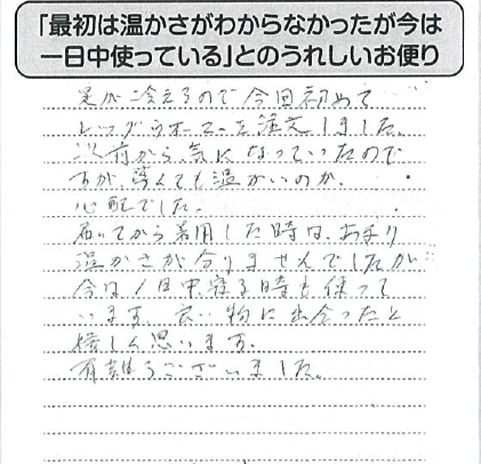 「最初は温かさがわからなかったが今は
一日中使っている」とのうれしいお便り
足が冷えるので今回初めて
レッグウオーマーを注文しました。
以前から気になっていったので
すが、薄くても温かいのか、
心配でした。
届いてから着用した時は、あまり
温かさが分りませんでしたが
今は1日中、寝る時も使って
います。良い物に出会ったと
嬉しく思います。
有難うございました。